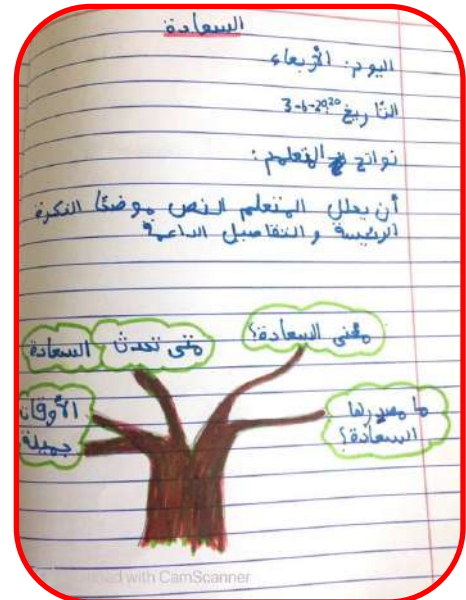 السعادة
اليوم: الأربعاء
التاريخ 3-6-2020
نواتج التعلم:
أن يحلل المتعلم النص موضحًا الفكرة
الرئيسة والتفاصيل الداعمة
معنى السعادة؟
متى تحدث السعادة
ما مصدرها
السعادة؟
الأوقات
جميلة
with CamScanner